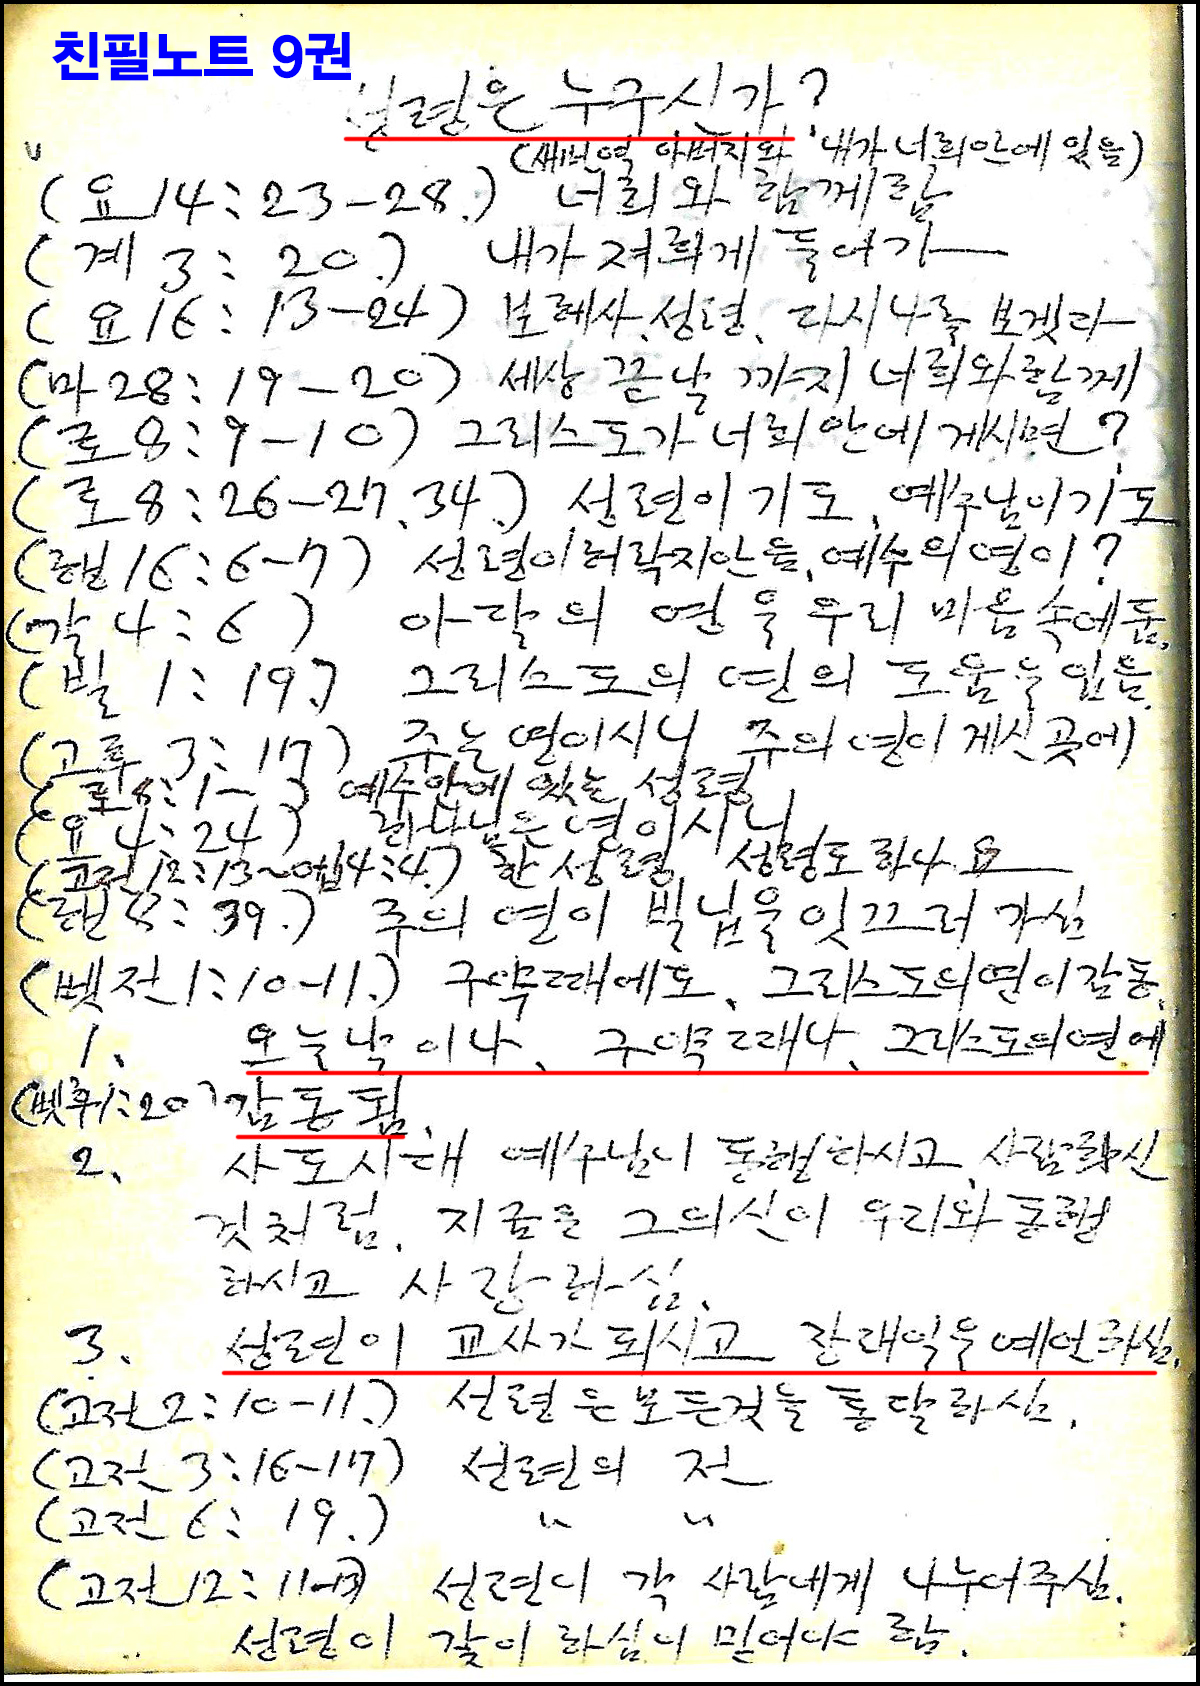 친필노트 9권
성령은 누구신가?
(새번역 아버지와 내가 너희안에 있음)
(요14:23-28.) 너희와 함께함
(계 3: 20.) 내가 저희게 들어가
(요16: 13-24) 보혜사, 성령, 다시 나를 보겟다
(마28: 19-20) 세상 끝날 까지 너희와함께
(로8: 9-10) 그리스도가 너희 안에 게시면?
(로8:26-27, 34.) 성령이 기도, 예수님이 기도
(행16:6-7) 성령이 허락지안음, 예수의 영이?
(갈 4: 6) 아달의 영을 우리 마음속에둠.
(빌 1: 19.) 그리스도의 영의 도움을 입음.
(고후 3: 17) 주는 영이시니 주의 영이 게신곳에
(로8:1- 예수안에 있는 성령
(요 4:24) 하나님은 영이시니
(고전12:13~엡4:4.) 한 성령, 성령도 하나요
(행8: 39.) 주의 영이 빌닙을 잇끄러 가심
(벳전1:10-11.) 구약때에도, 그리스도의영이 감동.
1. 오늘날 이나, 구약때나, 그리스도의영에
(벳후1:20) 감동됨.
2. 사도시대 예수님이 동행하시고, 사람하신
것처럼, 지금은 그의신이 우리와 동행
하시고 사랑하심.
3. 성령이 교사가 되시고 장래일을 예언하심.
(고전2:10-11.) 성령은 모든것을 통달하심.
(고전 3:16-17) 성령의 전
(고전 6: 19.) 〃 〃
(고전12:11-13) 성령이 각 사람에게 나누어주심.
성령이 갗이 하심이 믿어야 함.